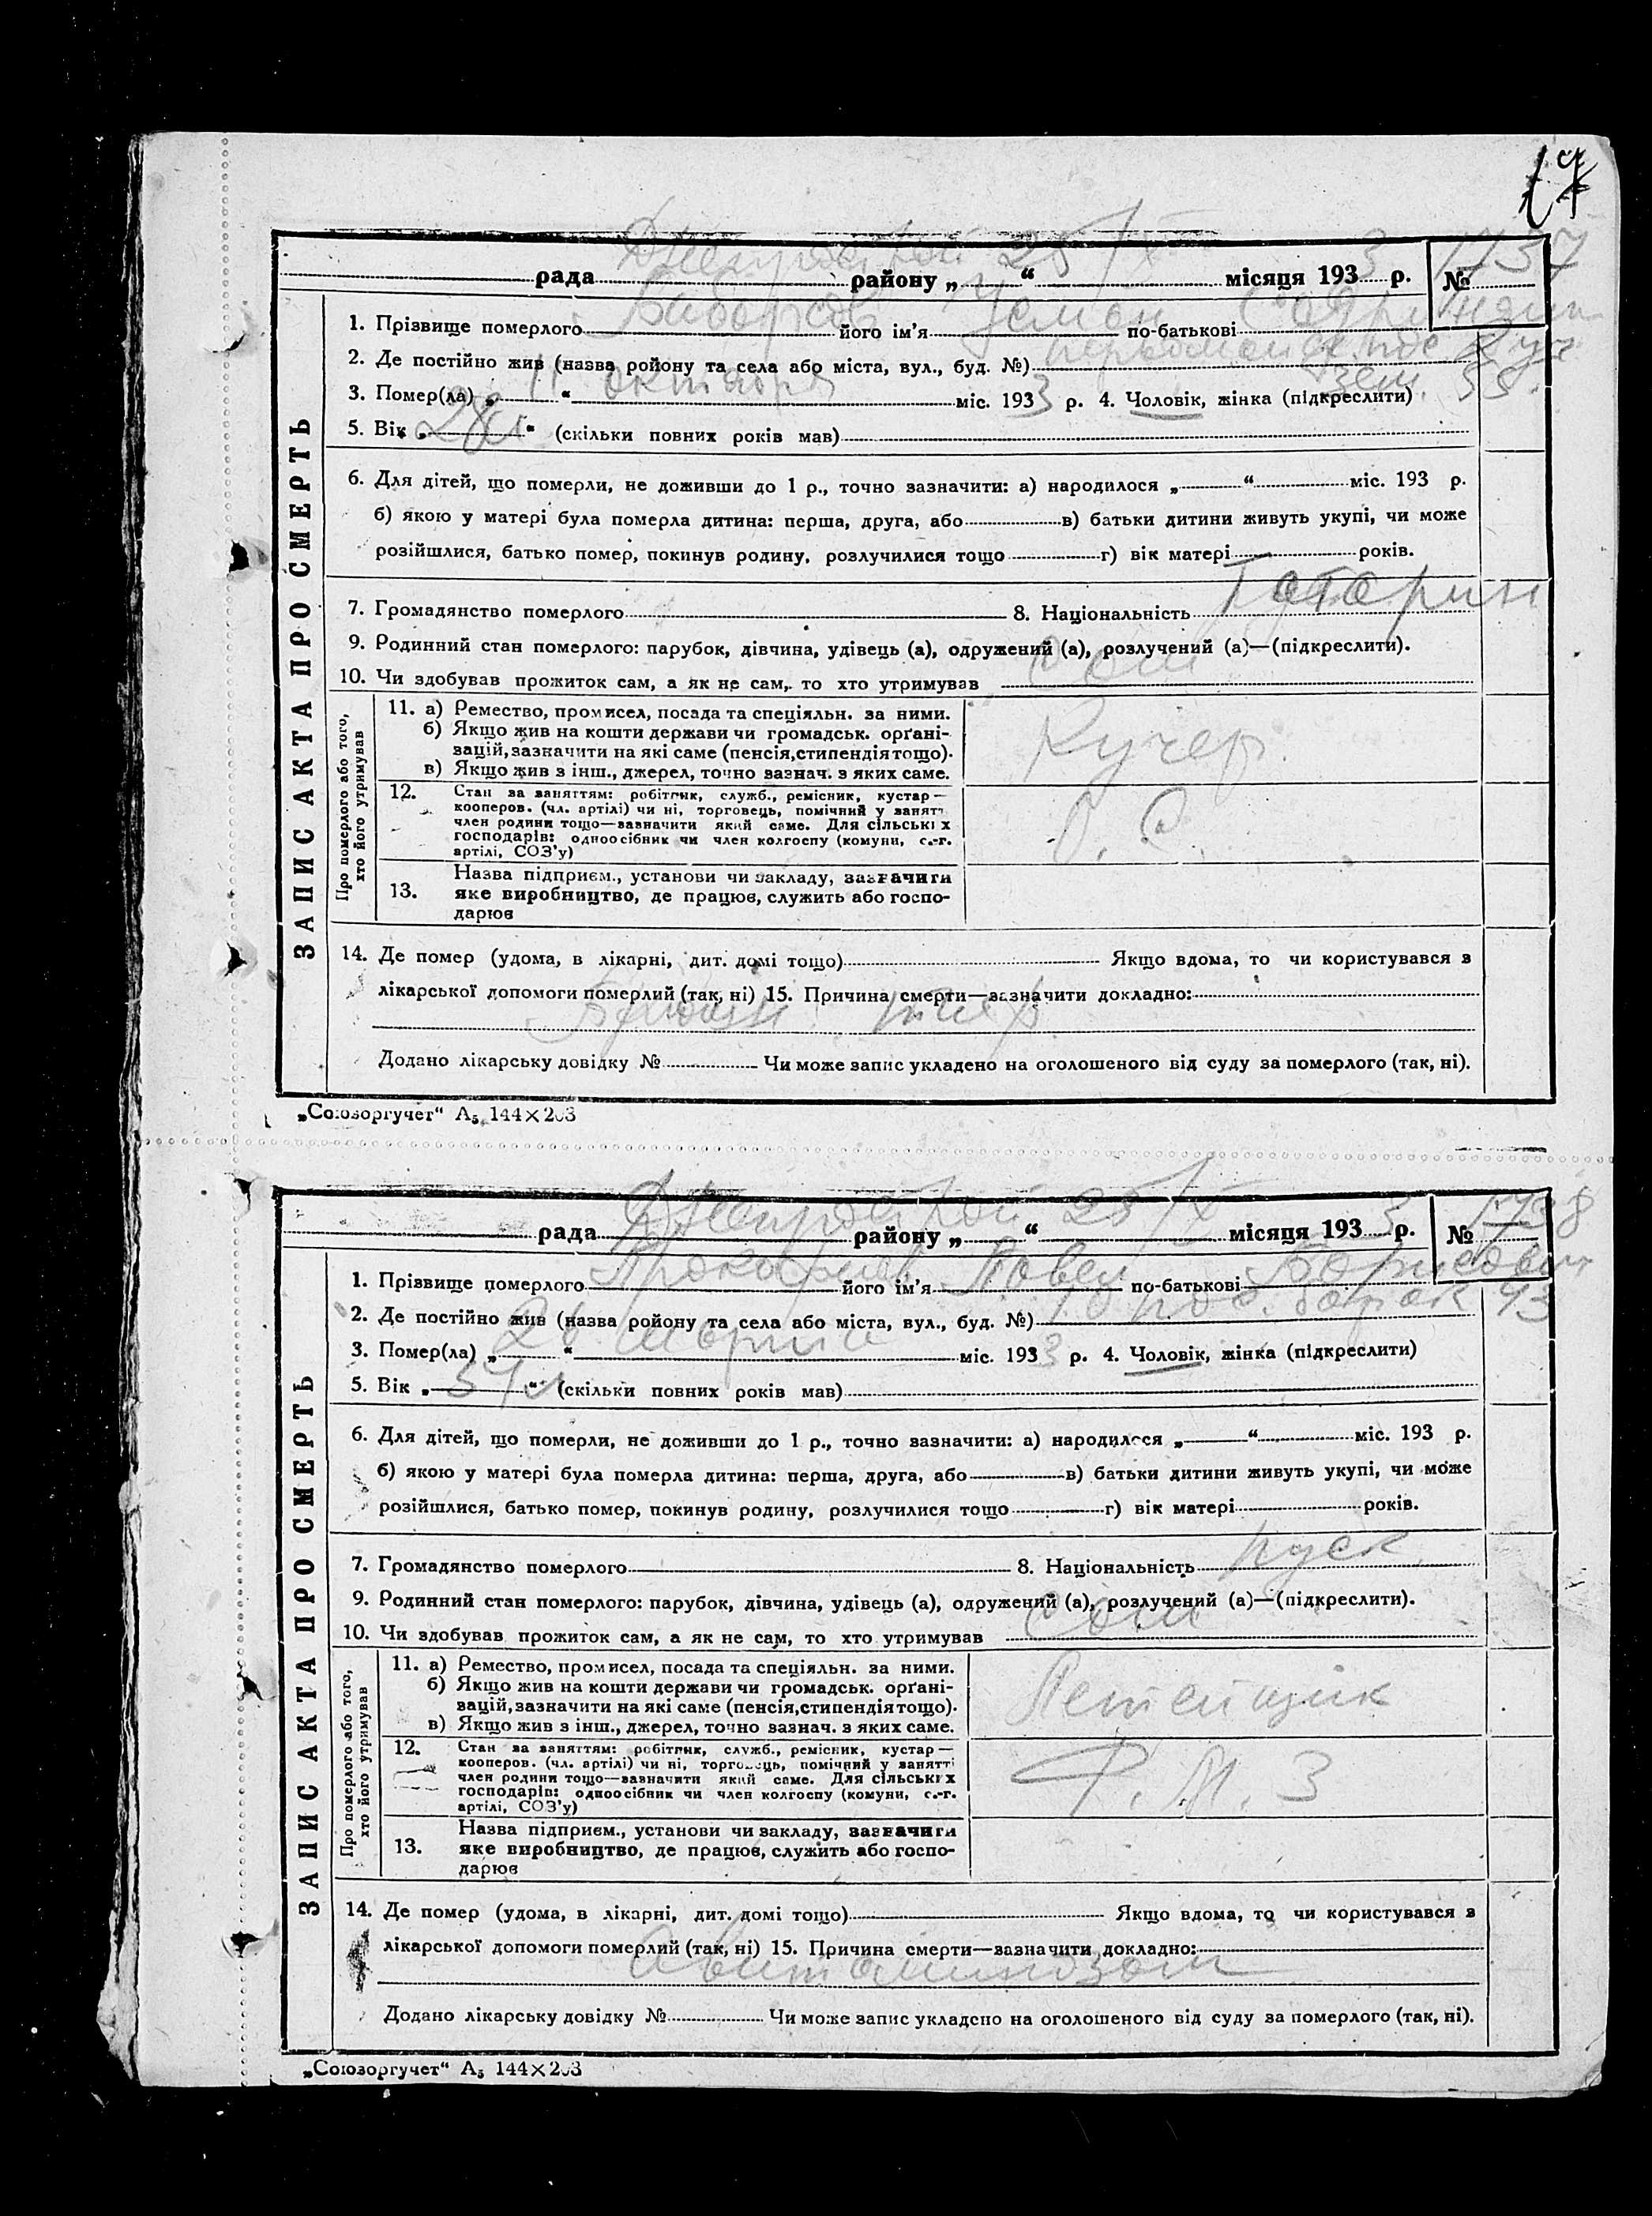 17
рада Днепрострой району „ 25 “ IX місяця 1933 р. № 1737
1. Прізвище померлого його ім’я Усман по-батькові
2. Де постійно жив (назва ройону та села або міста, вул., буд. №)
зем. 55.
3. Помер(ла) „ 11 “ октября міс. 1933 р. 4. Чоловік, жінка (підкреслити)
5. Вік „ 28 л “ (скільки повних років мав)
6. Для дітей, що померли, не доживши до 1 р., точно зазначити: а) народилося „ “ міс. 193 р.
б) якою у матері була померла дитина: перша, друга, або в) батьки дитини живуть укупі, чи може
розійшлися, батько помер, покинув родину, розлучилися тощо г) вік матері років.
7. Громадянство померлого 8. Національність Татарин
9. Родинний стан померлого: парубок, дівчина, удівець (а), одружений (а), розлучений (а)—(підкреслити).
10. Чи здобував прожиток сам, а як не сам, то хто утримував сам
ЗАПИС АКТА ПРО СМЕРТЬ
Про померлого або того, хто його утримував
11. а) Ремество, промисел, посада та спеціяльн. за ними.
б) Якщо жив на кошти держави чи громадськ. орґані-
зацій, зазначити на які саме (пенсія, стипендія тощо).
в) Якщо жив з інш., джерел, точно зазнач. з яких саме.
Кучер.
12. Стан за заняттям: робітник, служб., ремісник, кустар—
кооперов. (чл. артілі) чи ні, торговець, помічний у занятт
член родини тощо—зазначити який саме. Для сільських
господарів: одноосібник чи член колгоспу (комуни, с.-г.
артілі, СОЗ’у)
13. Назва підприєм., установи чи закладу, зазначити
яке виробництво, де працює, служить або госпо-
дарює
14. Де помер (удома, в лікарні, дит. домі тощо) Якщо вдома, то чи користувався з
лікарської допомоги померлий (так, ні) 15. Причина смерти—зазначити докладно:
тиф
Додано лікарську довідку № Чи може запис укладено на оголошеного від суду за померлого (так, ні).
„Союзоргучет“ А₅ 144×203
рада Днепрострой району „ 25 “ IX місяця 1933 р. № 1738
1. Прізвище померлого його ім’я Павел по-батькові Борисович
2. Де постійно жив (назва ройону та села або міста, вул., буд. №) барак 43
3. Помер(ла) „ “ марта міс. 1933 р. 4. Чоловік, жінка (підкреслити)
5. Вік „ 54 л “ (скільки повних років мав)
6. Для дітей, що померли, не доживши до 1 р., точно зазначити: а) народилося „ “ міс. 193 р.
б) якою у матері була померла дитина: перша, друга, або в) батьки дитини живуть укупі, чи може
розійшлися, батько помер, покинув родину, розлучилися тощо г) вік матері років.
7. Громадянство померлого 8. Національність руск.
9. Родинний стан померлого: парубок, дівчина, удівець (а), одружений (а), розлучений (а)—(підкреслити).
10. Чи здобував прожиток сам, а як не сам, то хто утримував сам
ЗАПИС АКТА ПРО СМЕРТЬ
Про померлого або того, хто його утримував
11. а) Ремество, промисел, посада та спеціяльн. за ними.
б) Якщо жив на кошти держави чи громадськ. орґані-
зацій, зазначити на які саме (пенсія, стипендія тощо).
в) Якщо жив з інш., джерел, точно зазнач. з яких саме.
12. Стан за заняттям: робітник, служб., ремісник, кустар—
кооперов. (чл. артілі) чи ні, торговець, помічний у занятті
член родини тощо—зазначити який саме. Для сільських
господарів: одноосібник чи член колгоспу (комуни, с.-г.
артілі, СОЗ’у)
Р. М. З
13. Назва підприєм., установи чи закладу, зазначити
яке виробництво, де працює, служить або госпо-
дарює
14. Де помер (удома, в лікарні, дит. домі тощо) Якщо вдома, то чи користувався з
лікарської допомоги померлий (так, ні) 15. Причина смерти—зазначити докладно:
Авитаминозом
Додано лікарську довідку № Чи може запис укладено на оголошеного від суду за померлого (так, ні).
„Союзоргучет“ А₅ 144×203